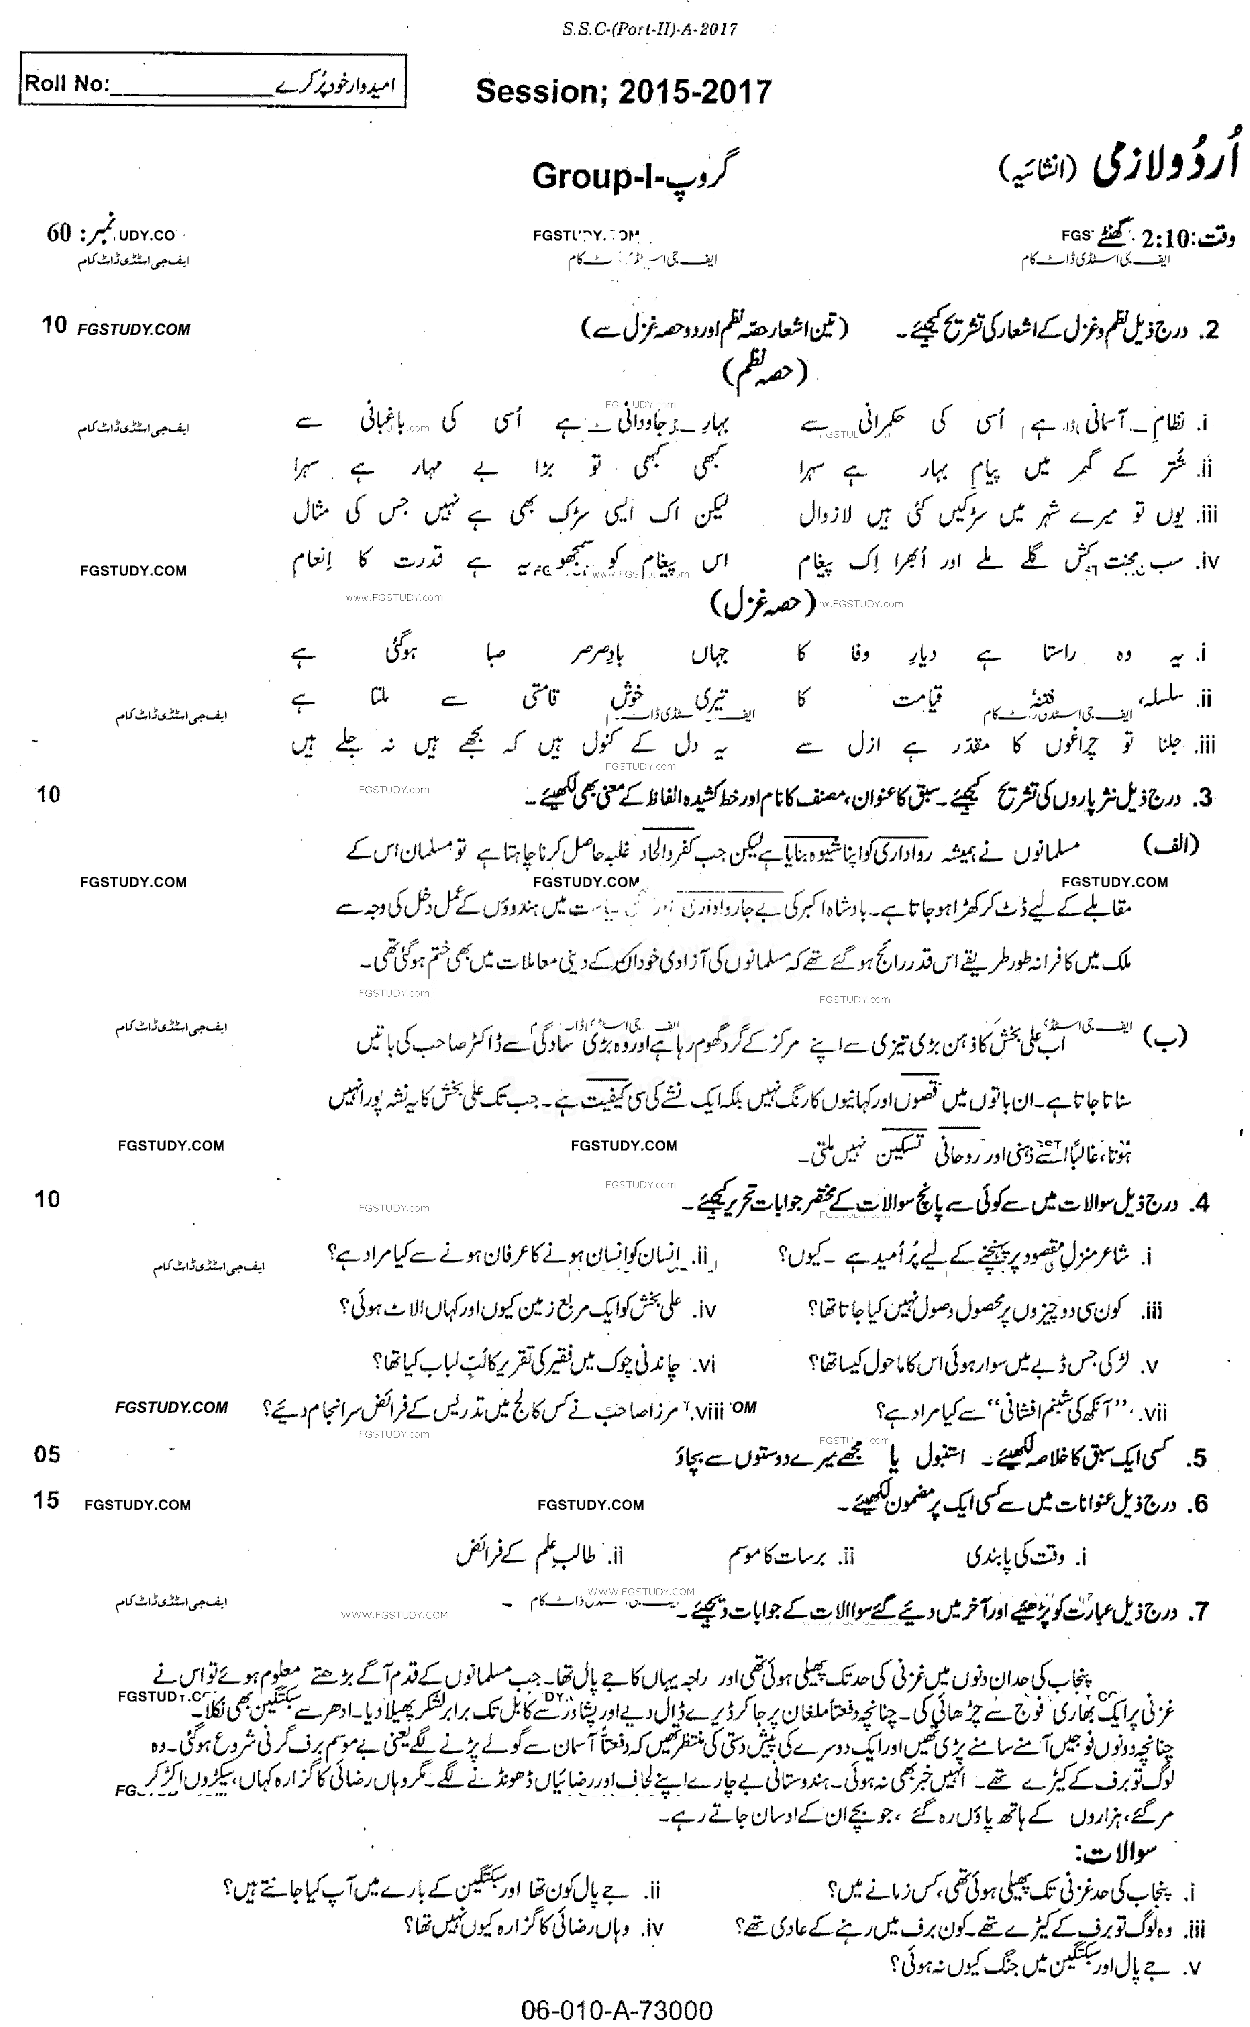 S.S.C-(Part-II)-A-2017
Roll No:____________ امیدوار خود پُر کرے
Session; 2015-2017
اُردُو لازمی (انشائیہ) گروپ-Group-I
وقت: 2:10 گھنٹے نمبر: 60
ایف جی اسٹڈی ڈاٹ کام
2. درج ذیل نظم و غزل کے اشعار کی تشریح کیجئے۔ (تین اشعار حصّہ نظم اور دو حصہ غزل سے) 10 FGSTUDY.COM
(حصہ نظم)
i. نظامِ آسمانی ہے اُسی کی حکمرانی سے بہارِ جاودانی ہے اُسی کی باغبانی سے ایف جی اسٹڈی ڈاٹ کام
ii. شُتر کے گھر میں پیامِ بہار ہے سہرا کبھی کبھی تو بڑا بے مہار ہے سہرا
iii. یوں تو میرے شہر میں سڑکیں کئی ہیں لازوال لیکن اک ایسی سڑک بھی ہے نہیں جس کی مثال
iv. سب محنت کش گلے ملے اور اُبھرا اِک پیغام اس پیغام کو سمجھو یہ ہے قدرت کا اِنعام FGSTUDY.COM
www.FGSTUDY.com (حصہ غزل) w.FGSTUDY.com
i. یہ وہ راستا ہے دیارِ وفا کا جہاں بادِ صرصر صبا ہوگئی ہے
ii. سلسلہ، فتنۂ قیامت کا تیری خوش قامتی سے ملتا ہے ایف جی اسٹڈی ڈاٹ کام
iii. جلنا تو چراغوں کا مقدّر ہے ازل سے یہ دل کے کنول ہیں کہ بجھے ہیں نہ جلے ہیں
FGSTUDY.com
3. درج ذیل نثر پاروں کی تشریح کیجئے۔ سبق کا عنوان، مصنف کا نام اور خط کشیدہ الفاظ کے معنی بھی لکھیئے۔ FGSTUDY.com 10
(الف) مسلمانوں نے ہمیشہ رواداری کو اپنا شیوہ بنایا ہے لیکن جب کفر و الحاد غلبہ حاصل کرنا چاہتا ہے تو مسلمان اس کے
FGSTUDY.COM FGSTUDY.COM FGSTUDY.COM
مقابلے کے لیے ڈٹ کر کھڑا ہو جاتا ہے۔ بادشاہ اکبر کی بے جا رواداری اور سیاست میں ہندوؤں کے عمل دخل کی وجہ سے
ملک میں کافرانہ طور طریقے اس قدر رائج ہو گئے تھے کہ مسلمانوں کی آزادی خود ان کے دینی معاملات میں بھی ختم ہو گئی تھی۔
FGSTUDY.com FGSTUDY.com
(ب) اب علی بخش کا ذہن بڑی تیزی سے اپنے مرکز کے گرد گھوم رہا ہے اور وہ بڑی سادگی سے ڈاکٹر صاحب کی باتیں ایف جی اسٹڈی ڈاٹ کام
سناتا جاتا ہے۔ ان باتوں میں قصوں اور کہانیوں کا رنگ نہیں بلکہ ایک نشے کی سی کیفیت ہے۔ جب تک علی بخش کا یہ نشہ پورا نہیں
ہوتا، غالباً اسے ذہنی اور روحانی تسکین نہیں ملتی۔ FGSTUDY.COM FGSTUDY.COM
FGSTUDY.com
4. درج ذیل سوالات میں سے کوئی سے پانچ سوالات کے مختصر جوابات تحریر کیجئے۔ FGSTUDY.com 10
i. شاعر منزلِ مقصود پر پہنچنے کے لیے پُر اُمید ہے ۔ کیوں؟ ii. اِنسان کو انسان ہونے کا عرفان ہونے سے کیا مراد ہے؟ ایف جی اسٹڈی ڈاٹ کام
iii. کون سی دو چیزوں پر محصول وصول نہیں کیا جاتا تھا؟ iv. علی بخش کو ایک مربع زمین کیوں اور کہاں الاٹ ہوئی؟
v. لڑکی جس ڈبے میں سوار ہوئی اس کا ماحول کیسا تھا؟ vi. چاندنی چوک میں فقیر کی تقریر کا لُبِ لباب کیا تھا؟
vii. ”آنکھ کی شبنم افشانی“ سے کیا مراد ہے؟ viii. مرزا صاحب نے کس کالج میں تدریس کے فرائض سرانجام دیئے؟ FGSTUDY.COM
FGSTUDY.com
5. کسی ایک سبق کا خلاصہ لکھیئے۔ استنبول یا مجھے میرے دوستوں سے بچاؤ 05
6. درج ذیل عنوانات میں سے کسی ایک پر مضمون لکھیئے۔ FGSTUDY.COM FGSTUDY.COM 15
i. وقت کی پابندی ii. برسات کا موسم ii. طالبِ علم کے فرائض
7. درج ذیل عبارت کو پڑھیئے اور آخر میں دیئے گئے سوالات کے جوابات دیجئے۔ WWW.FGSTUDY.COM ایف جی اسٹڈی ڈاٹ کام
پنجاب کی حد ان دنوں میں غزنی کی حد تک پھیلی ہوئی تھی اور راجہ یہاں کا جے پال تھا۔ جب مسلمانوں کے قدم آگے بڑھتے معلوم ہوئے تو اس نے
غزنی پر ایک بھاری فوج سے چڑھائی کی۔ چنانچہ دفعتاً ملغان پر جا کر ڈیرے ڈال دیے اور پشاور سے کابل تک برابر لشکر پھیلا دیا۔ ادھر سے سبکتگین بھی نکلا۔
چنانچہ دونوں فوجیں آمنے سامنے پڑی تھیں اور ایک دوسرے کی پیش دستی کی منتظر تھیں کہ دفعتاً آسمان سے گولے پڑنے لگے یعنی بے موسم برف گرنی شروع ہو گئی۔ وہ
لوگ تو برف کے کیڑے تھے۔ انہیں خبر بھی نہ ہوئی۔ ہندوستانی بے چارے اپنے لحاف اور رضائیاں ڈھونڈنے لگے۔ مگر وہاں رضائی کا گزارہ کہاں، سیکڑوں اکڑ کر
مر گئے، ہزاروں کے ہاتھ پاؤں رہ گئے، جو بچے ان کے اوسان جاتے رہے۔
سوالات:
i. پنجاب کی حد غزنی تک پھیلی ہوئی تھی، کس زمانے میں؟ ii. جے پال کون تھا اور سبکتگین کے بارے میں آپ کیا جانتے ہیں؟
iii. وہ لوگ تو برف کے کیڑے تھے۔ کون برف میں رہنے کے عادی تھے؟ iv. وہاں رضائی کا گزارہ کیوں نہیں تھا؟
v. جے پال اور سبکتگین میں جنگ کیوں نہ ہوئی؟
06-010-A-73000